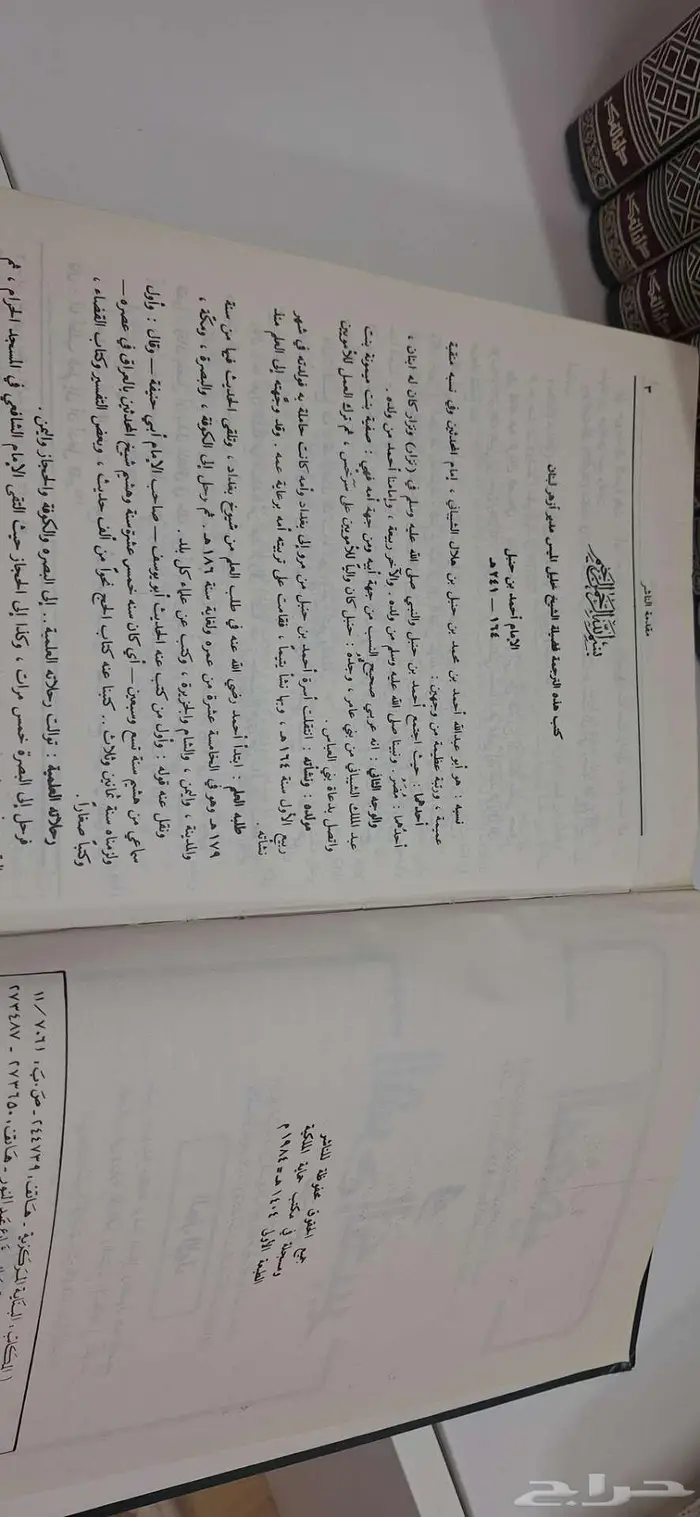 مقدمة الناشر
٣
بسم الله الرحمن الرحيم
كتب هذه الترجمة فضيلة الشيخ خليل الميس مدير أزهر لبنان
الإمام أحمد بن حنبل
١٦٤ — ٢٤١ هـ
نسبه : هو أبو عبدالله أحمد بن محمد بن حنبل بن هلال الشيباني ، إمام المحدثين وفي نسبه منقبة
عجيبة ، ورتبة عظيمة من وجهين :
أحدهما : حيث اجتمع أحمد بن حنبل والنبي صلى الله عليه وسلم في (نزار) ونزار كان له ابنان ،
أحدهما : مضر ونبينا صلى الله عليه وسلم من ولده . والآخر ربيعة . وإمامنا أحمد من ولده .
والوجه الثاني : أنه عربي صحيح النسب من جهة أبيه ومن جهة أمه فهي : صفية بنت ميمونة بنت
عبد الملك الشيباني من بني عامر ، وجده : حنبل كان والياً للأمويين على سرخس ، ثم ترك العمل للأمويين
واتصل بدعاة بني العباس .
مولده : ونشأته : انتقلت أسرة أحمد بن حنبل من مرو إلى بغداد وأمه كانت حاملة به فولدته في شهر
ربيع الأول سنة ١٦٤ هـ ، وبها نشأ يتيماً ، فقامت على تربيته أمه برعاية عمه . وقد وجّهه إلى العلم منذ
نشأته .
طلبه العلم : ابتدأ أحمد رضي الله عنه في طلب العلم من شيوخ بغداد ، وتلقى الحديث فيها من سنة
١٧٩ هـ وهو في الخامسة عشرة من عمره ولغاية سنة ١٨٦ هـ . ثم رحل إلى الكوفة ، والبصرة ، ومكة ،
والمدينة ، واليمن ، والشام والجزيرة ، وكتب عن علماء كل بلد .
ونقل عنه قوله : وأول من كتب عنه الحديث أبو يوسف — صاحب الإمام أبي حنيفة — وقال : وأول
سماعي من هشيم سنة تسع وسبعين — أي كان سنه خمس عشرة سنة وهشيم شيخ المحدثين بالعراق في عصره —
ولزمناه سنة ثمانين وثلاث .. كتبنا عنه كتاب الحج نحواً من ألف حديث ، وبعض التفسير وكتاب القضاء ،
وكتباً صغاراً .
رحلاته العلمية : توالت رحلاته العلمية .. إلى البصره والكوفة والحجاز واليمن .
فرحل إلى البصرة خمس مرات ، وكذا إلى الحجاز حيث التقى الإمام الشافعي في المسجد الحرام ، ثم
جميع الحقوق محفوظة للناشر
ومسجلة في مكتب حماية الملكية
الطبعة الأولى ١٤٠٤ هـ = ١٩٨٤ م
المكاتب ، البناية المركزية - هاتف، ٢٤٤٧٣٩ - ص.ب، ١١/٧٠٦١
هاتف، ٢٧٣٦٥٠ - ٢٧٣٤٨٧
حراج